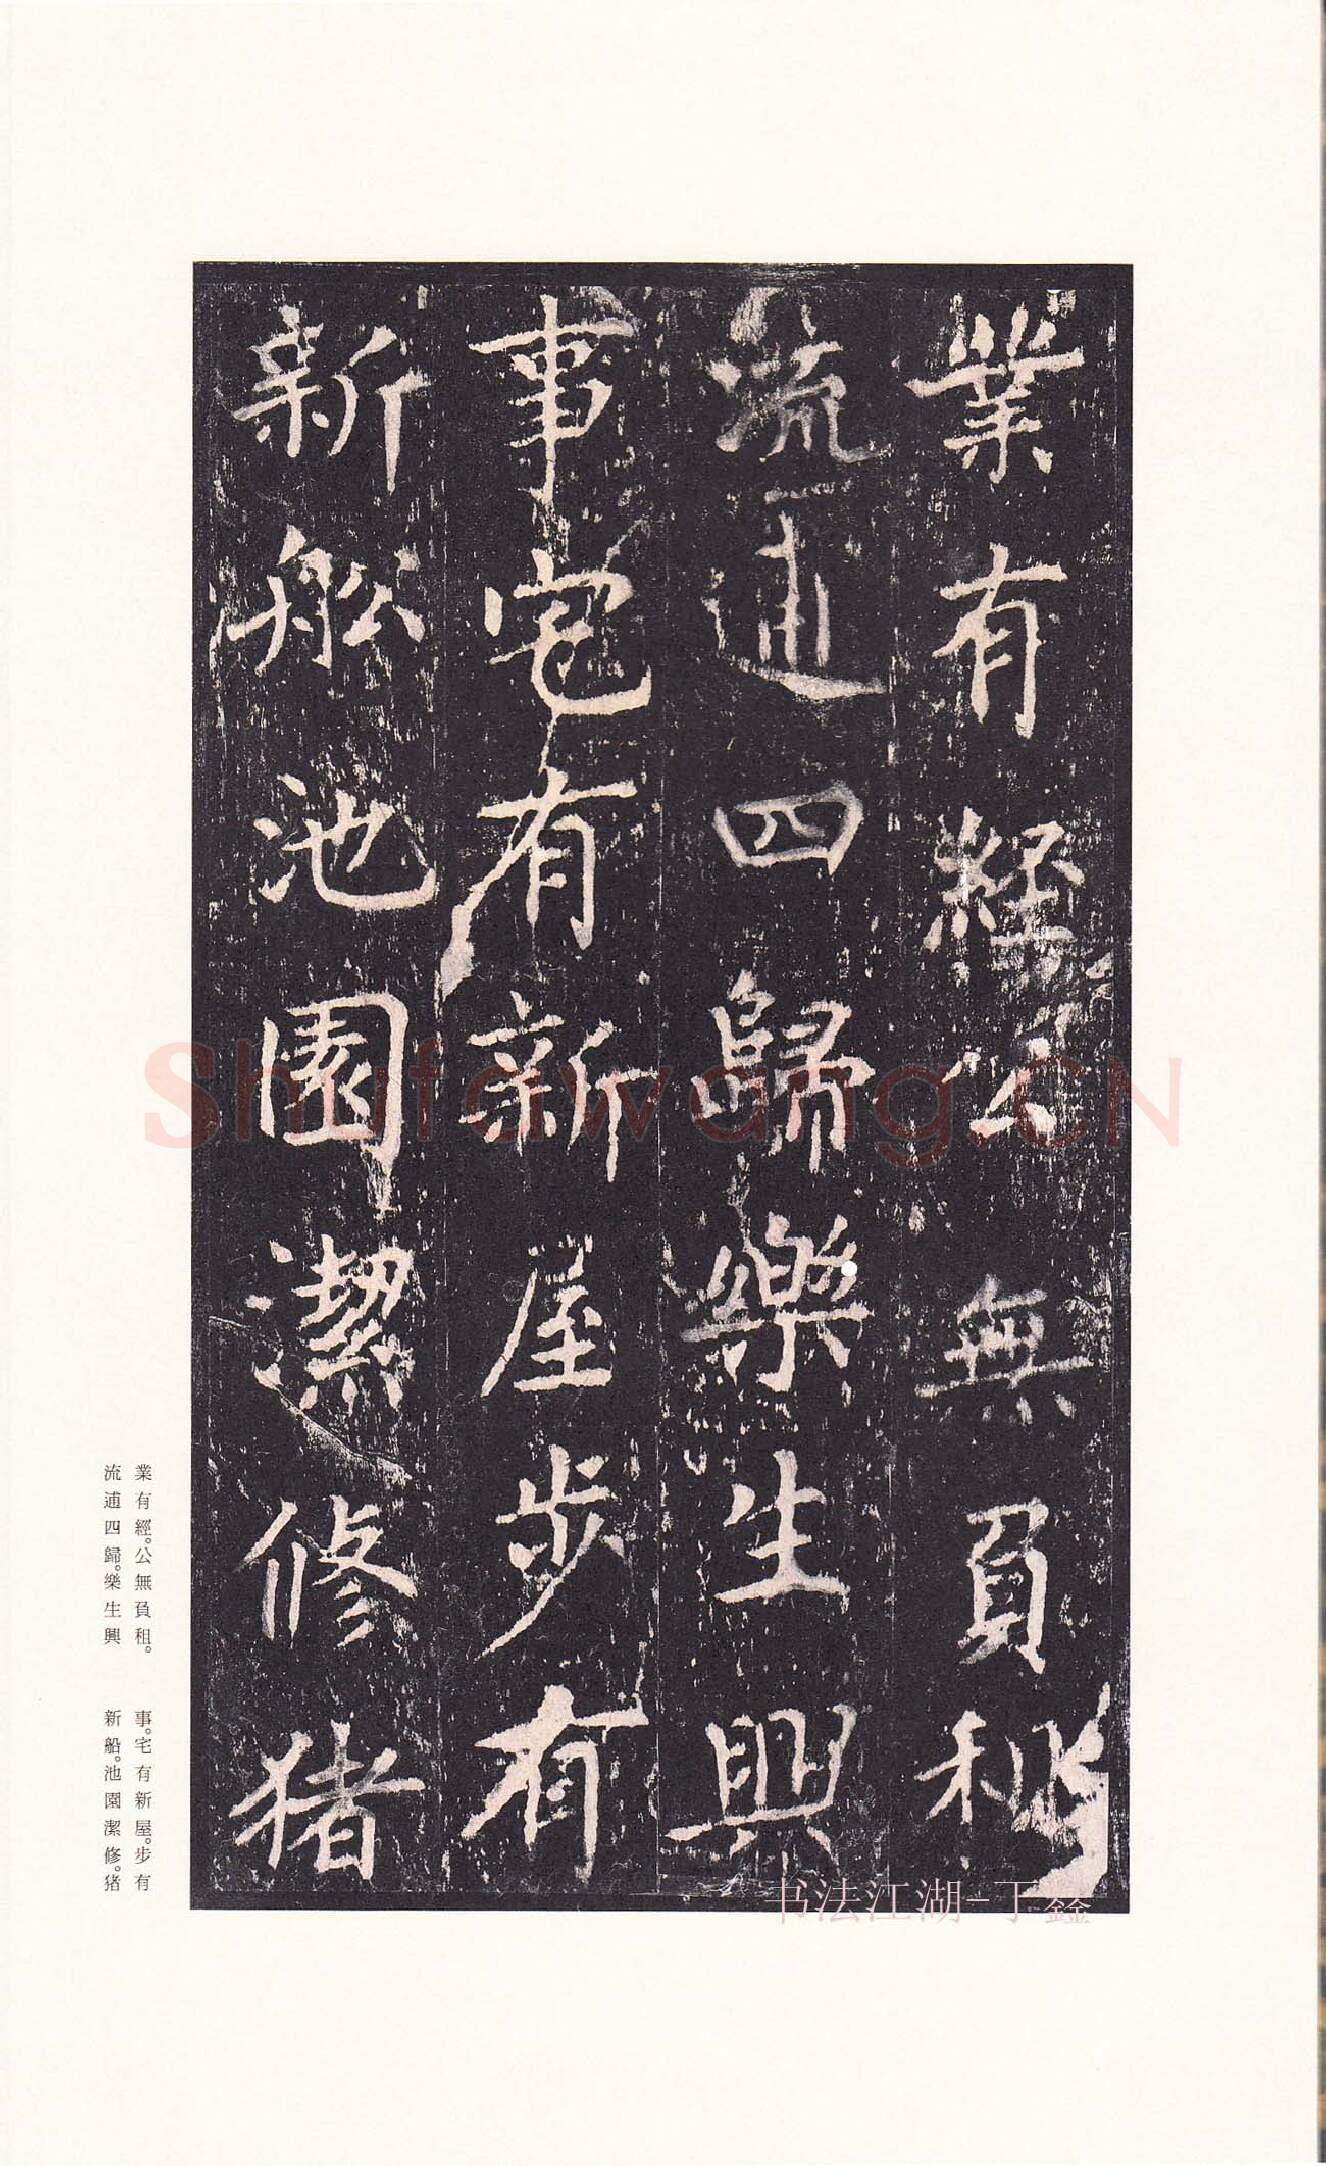 業有經公無負租
流逋四歸樂生興
事宅有新屋步有
新船池園潔修猪
業有經。公無負租。
流逋四歸。樂生興
事。宅有新屋。步有
新船。池園潔修。猪
Shufawang.CN
书法江湖-丁鑫